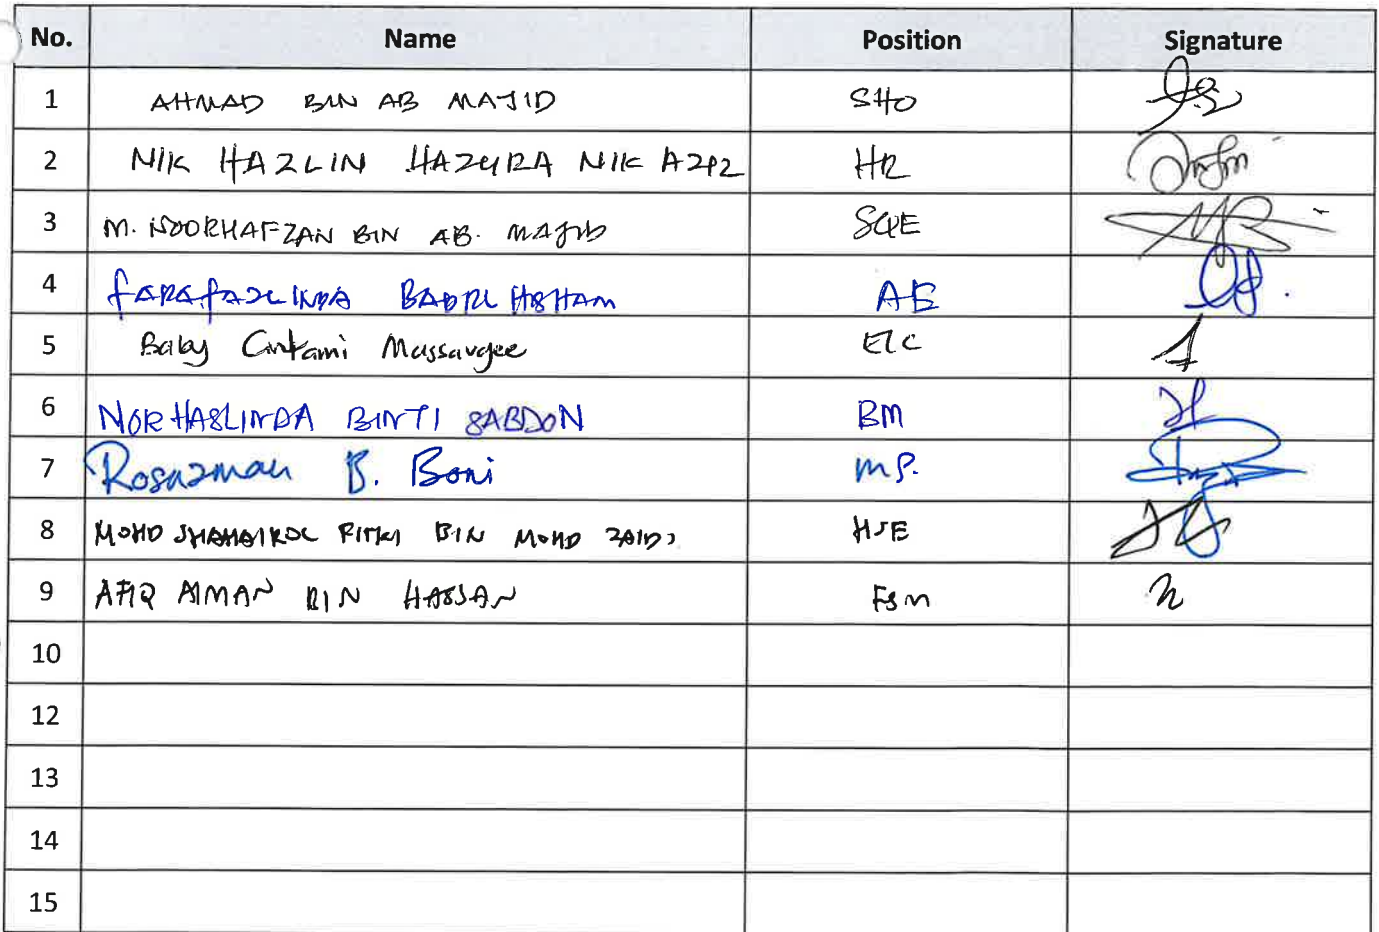 No. Name Position Signature
1 AHMAD BIN AB MAJID SHO
2 NIK HAZLIN HAZURA NIK AZIZ HR
3 M. NOORHAFZAN BIN AB. MAJID SQE
4 FARAFAZLINDA BADRUL HISHAM AE
5 Baby Mussavgee
6 NORHASLINDA BINTI SABDON BM
7 Rosazman B. Boni MP.
8 MOHD BIN MOHD ZAIDI HSE
9 AFIQ AIMAN BIN HASSAN FSM
10
12
13
14
15